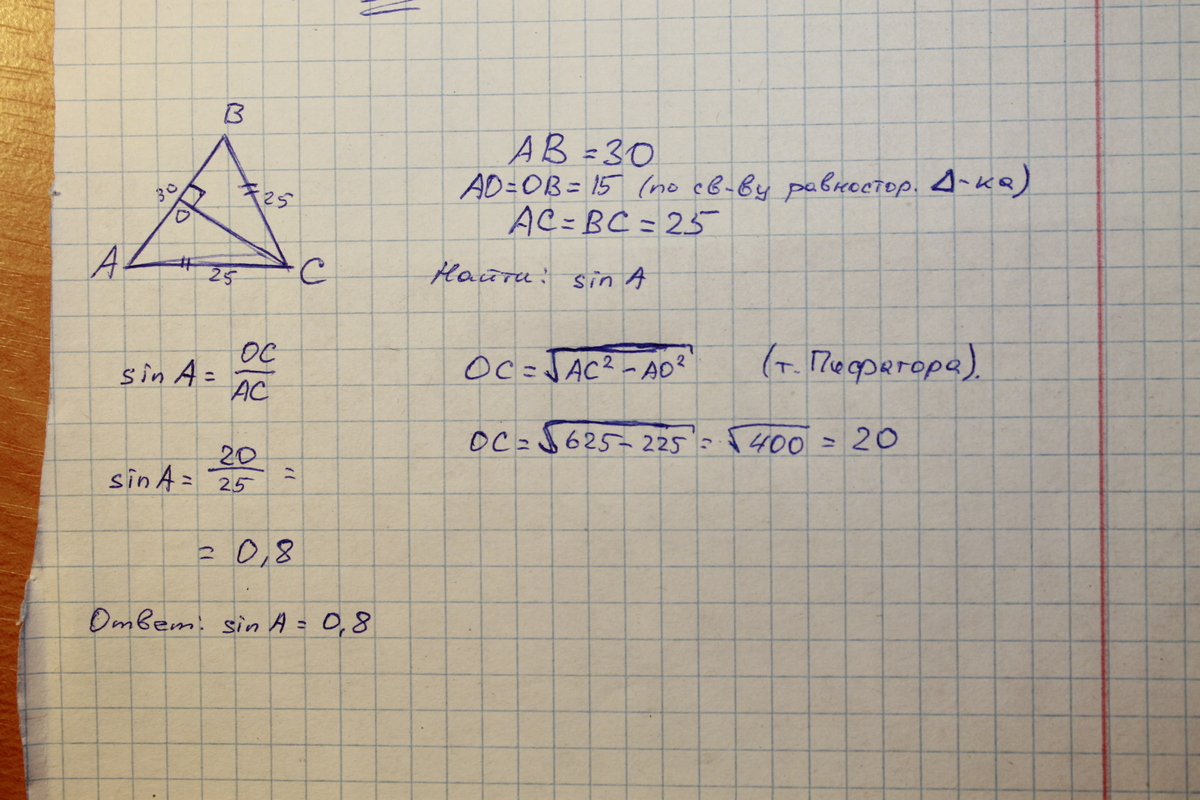 B
30
O
25
A
25
C
AB = 30
AO=OB=15 (по св-ву равностор. Δ-ка)
AC=BC=25
Найти: sin A
sin A = OC/AC
OC = √(AC² - AO²) (т. Пифагора).
OC = √(625-225) = √400 = 20
sin A = 20/25 =
= 0,8
Ответ: sin A = 0,8